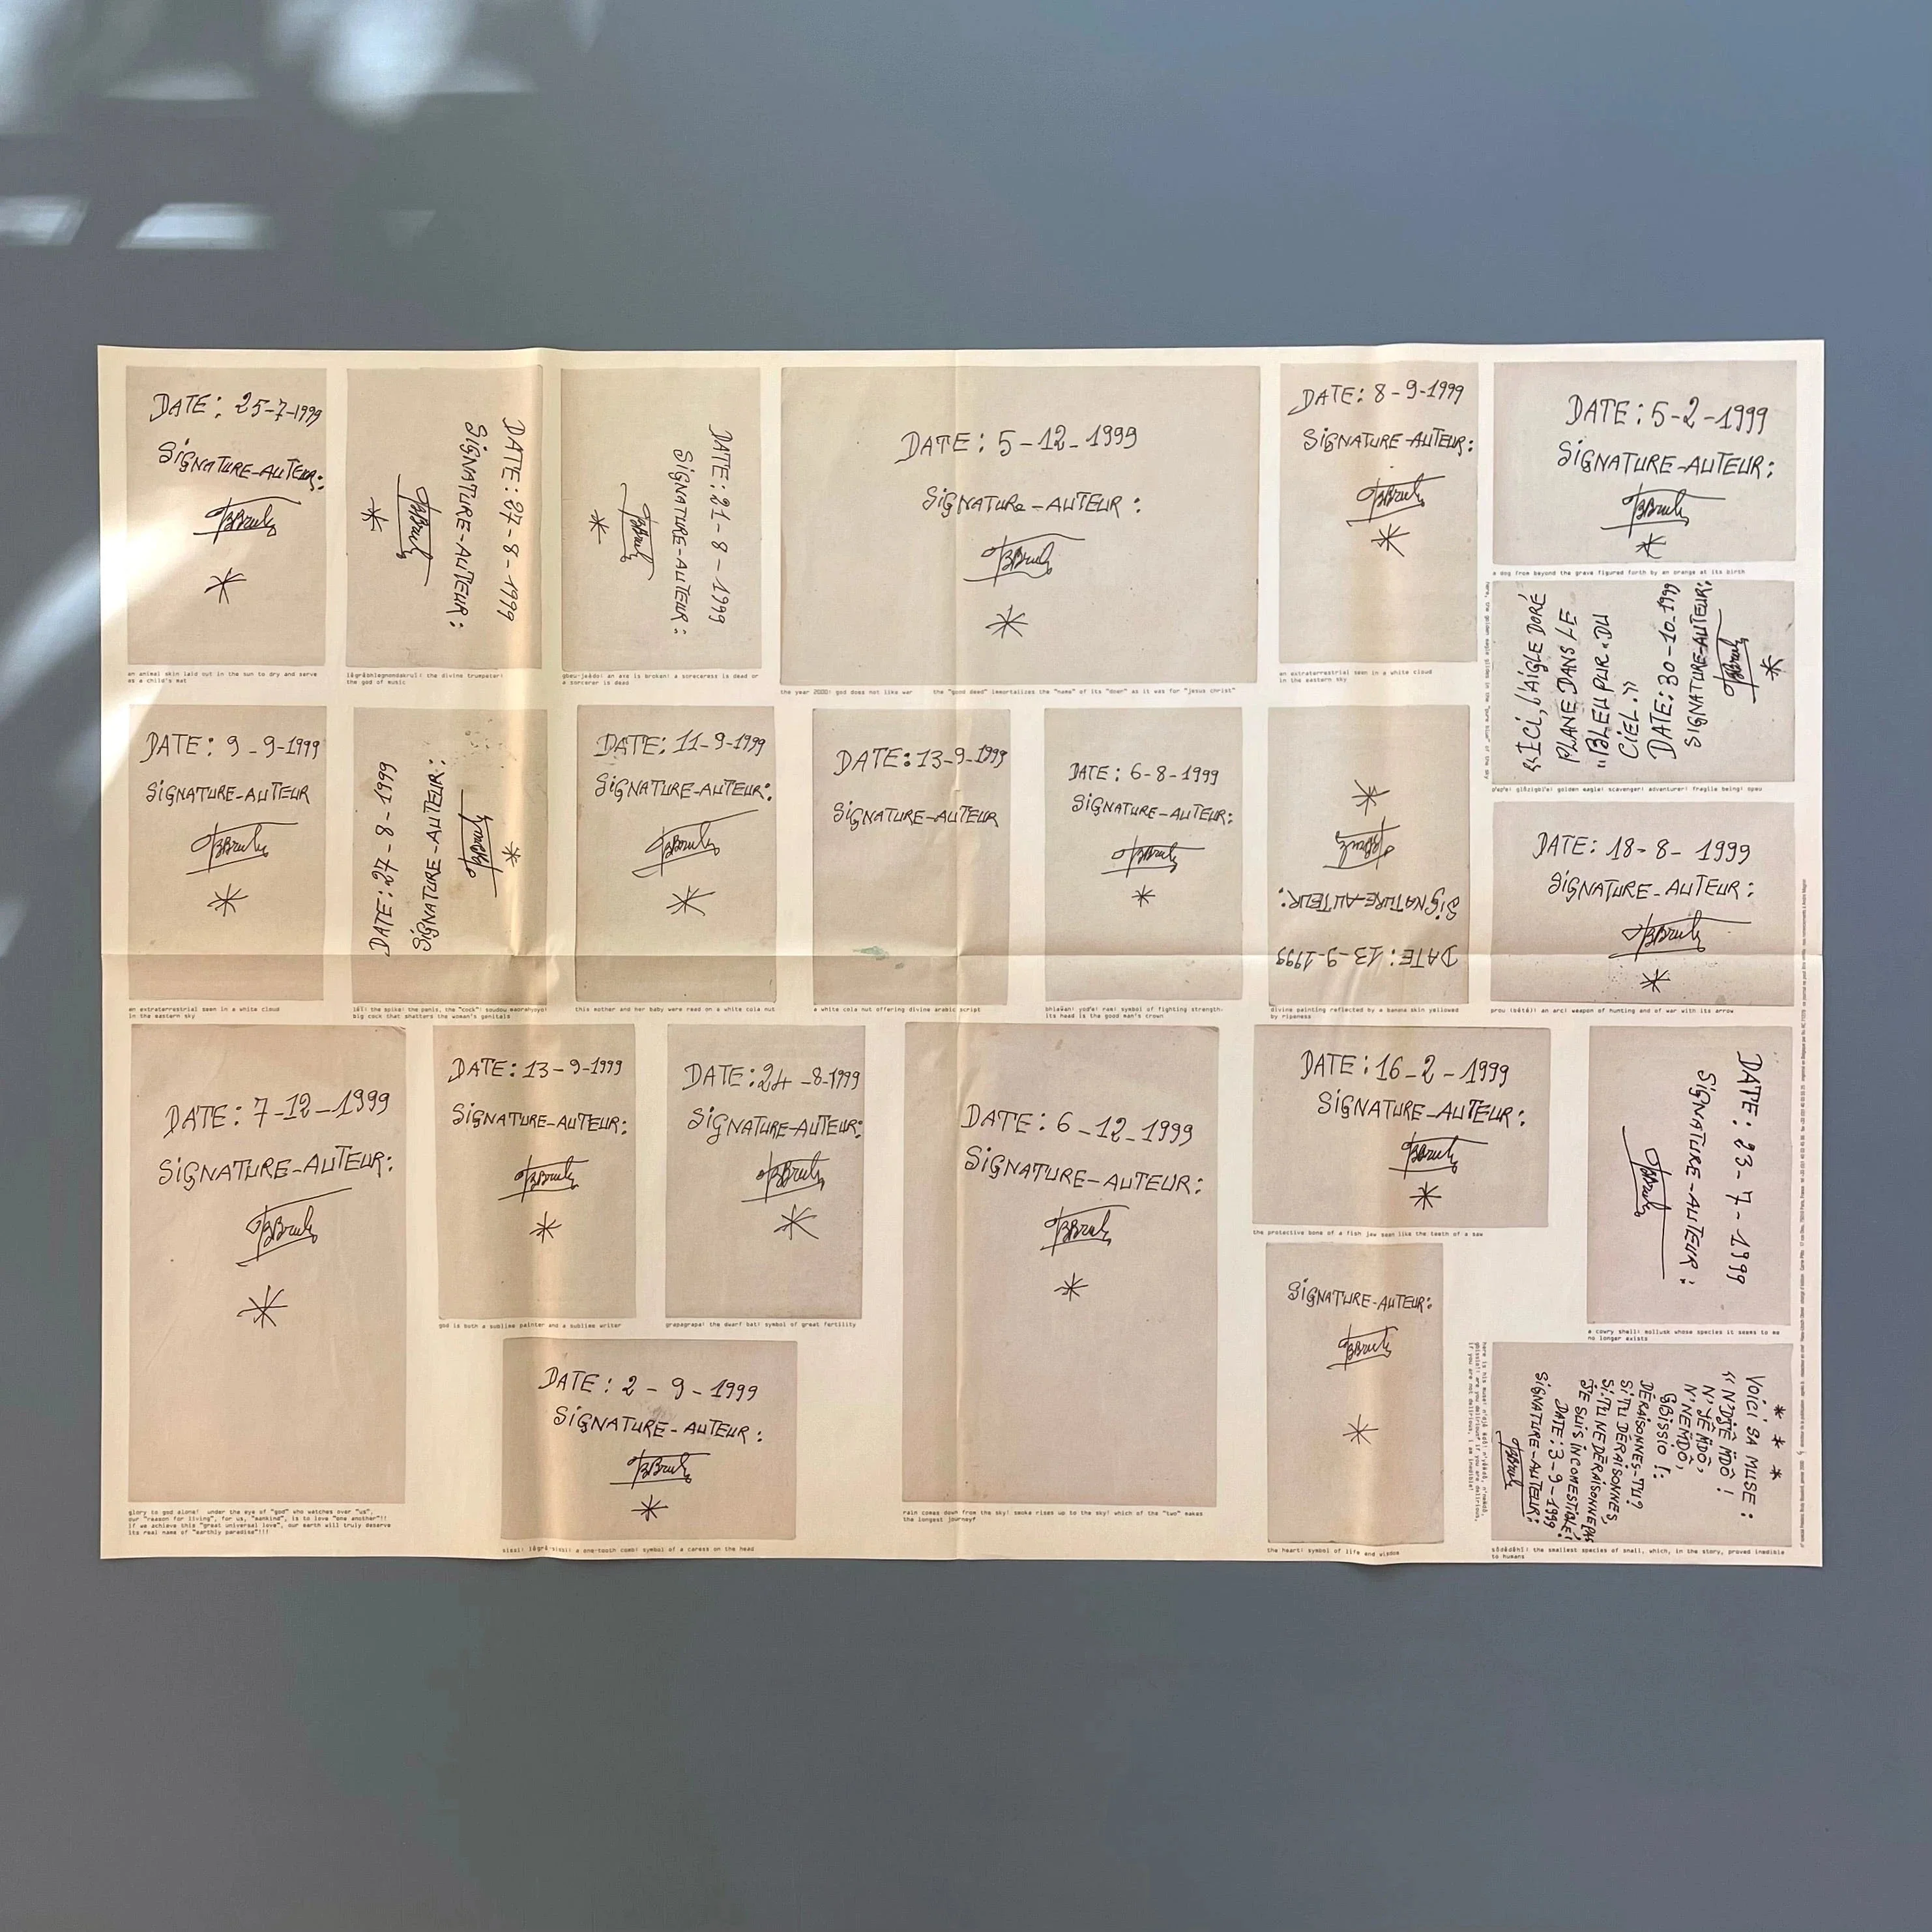 DATE: 25-7-1999
SIGNATURE-AUTEUR:
an animal skin laid out in the sun to dry and serve
as a child's mat
DATE: 27-8-1999
SIGNATURE-AUTEUR:
the divine trumpeter!
the god of music
DATE: 21-8-1999
SIGNATURE-AUTEUR:
an axe is broken! a sorceress is dead or
a sorcerer is dead
DATE: 5-12-1999
SIGNATURE-AUTEUR:
the year 2000! god does not like war
the "good deed" immortalizes the "name" of its "doer" as it was for "jesus christ"
DATE: 8-9-1999
SIGNATURE-AUTEUR:
an extraterrestrial seen in a white cloud
in the eastern sky
DATE: 5-2-1999
SIGNATURE-AUTEUR:
a dog from beyond the grave figured forth by an orange at its birth
<<ICI, L'AIGLE DORÉ
PLANE DANS LE
"BLEU PUR" DU
CIEL.>>
DATE: 30-10-1999
SIGNATURE-AUTEUR:
here, the golden eagle glides in the "pure blue" of the sky
golden eagle! scavenger! adventurer! fragile being!
DATE: 9-9-1999
SIGNATURE-AUTEUR
an extraterrestrial seen in a white cloud
in the eastern sky
DATE: 27-8-1999
SIGNATURE-AUTEUR:
the spike! the penis, the "cock"!
big cock that shatters the woman's genitals
DATE: 11-9-1999
SIGNATURE-AUTEUR:
this mother and her baby were read on a white cola nut
DATE: 13-9-1999
SIGNATURE-AUTEUR
a white cola nut offering divine arabic script
DATE: 6-8-1999
SIGNATURE-AUTEUR:
ram! symbol of fighting strength.
its head is the good man's crown
DATE: 13-9-1999
SIGNATURE-AUTEUR:
divine painting reflected by a banana skin yellowed
by ripeness
DATE: 18-8-1999
SIGNATURE-AUTEUR:
an arc! weapon of hunting and of war with its arrow
DATE: 7-12-1999
SIGNATURE-AUTEUR:
glory to god alone! under the eye of "god" who watches over "us",
our "reason for living", for us, "mankind", is to love "one another"!!
if we achieve this "great universal love", our earth will truly deserve
its real name of "earthly paradise"!!!
DATE: 13-9-1999
SIGNATURE-AUTEUR:
god is both a sublime painter and a sublime writer
DATE: 24-8-1999
SIGNATURE-AUTEUR:
grapagrapa! the dwarf bat! symbol of great fertility
DATE: 2-9-1999
SIGNATURE-AUTEUR:
a one-tooth comb! symbol of a caress on the head
DATE: 6-12-1999
SIGNATURE-AUTEUR:
rain comes down from the sky! smoke rises up to the sky! which of the "two" makes
the longest journey?
DATE: 16-2-1999
SIGNATURE-AUTEUR:
the protective bone of a fish jaw seen like the teeth of a saw
SIGNATURE-AUTEUR:
the heart! symbol of life and wisdom
DATE: 23-7-1999
SIGNATURE-AUTEUR:
a cowry shell! mollusk whose species it seems to me
no longer exists
VOICI SA MUSE:
DÉRAISONNES-TU?
SI TU DÉRAISONNES,
SI TU NE DÉRAISONNE PAS
JE SUIS INCOMESTIBLE!
DATE: 3-9-1999
SIGNATURE-AUTEUR:
here is his muse!
are you delirious? if you are delirious,
if you are not delirious, i am inedible!
the smallest species of snail, which, in the story, proved inedible
to humans